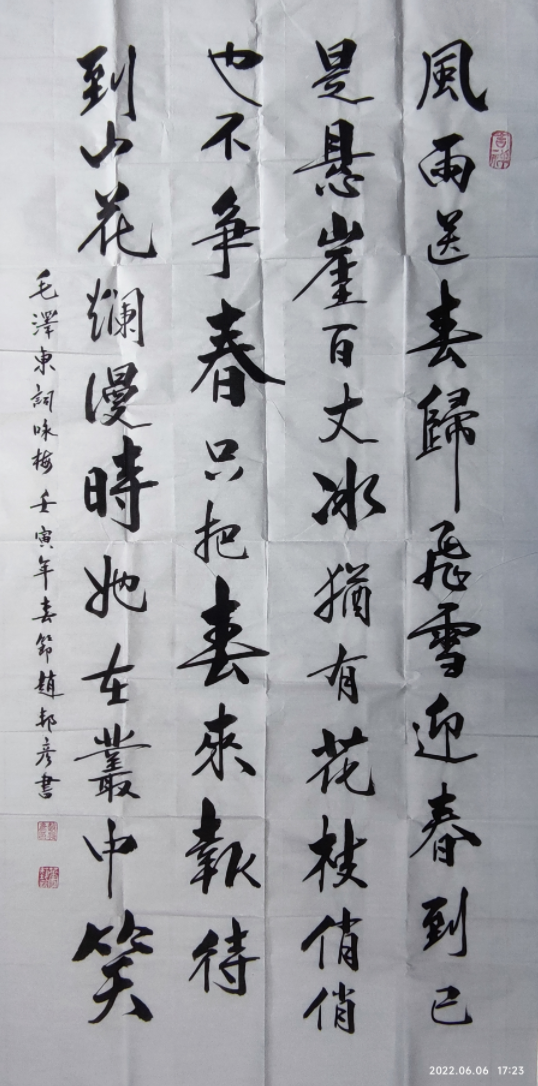 風雨送春歸飛雪迎春到已
是懸崖百丈冰猶有花枝俏俏
也不争春只把春來報待
到山花爛漫時她在叢中笑
毛澤東詞咏梅 壬寅年春節趙邦彦書
2022.06.06 17:23